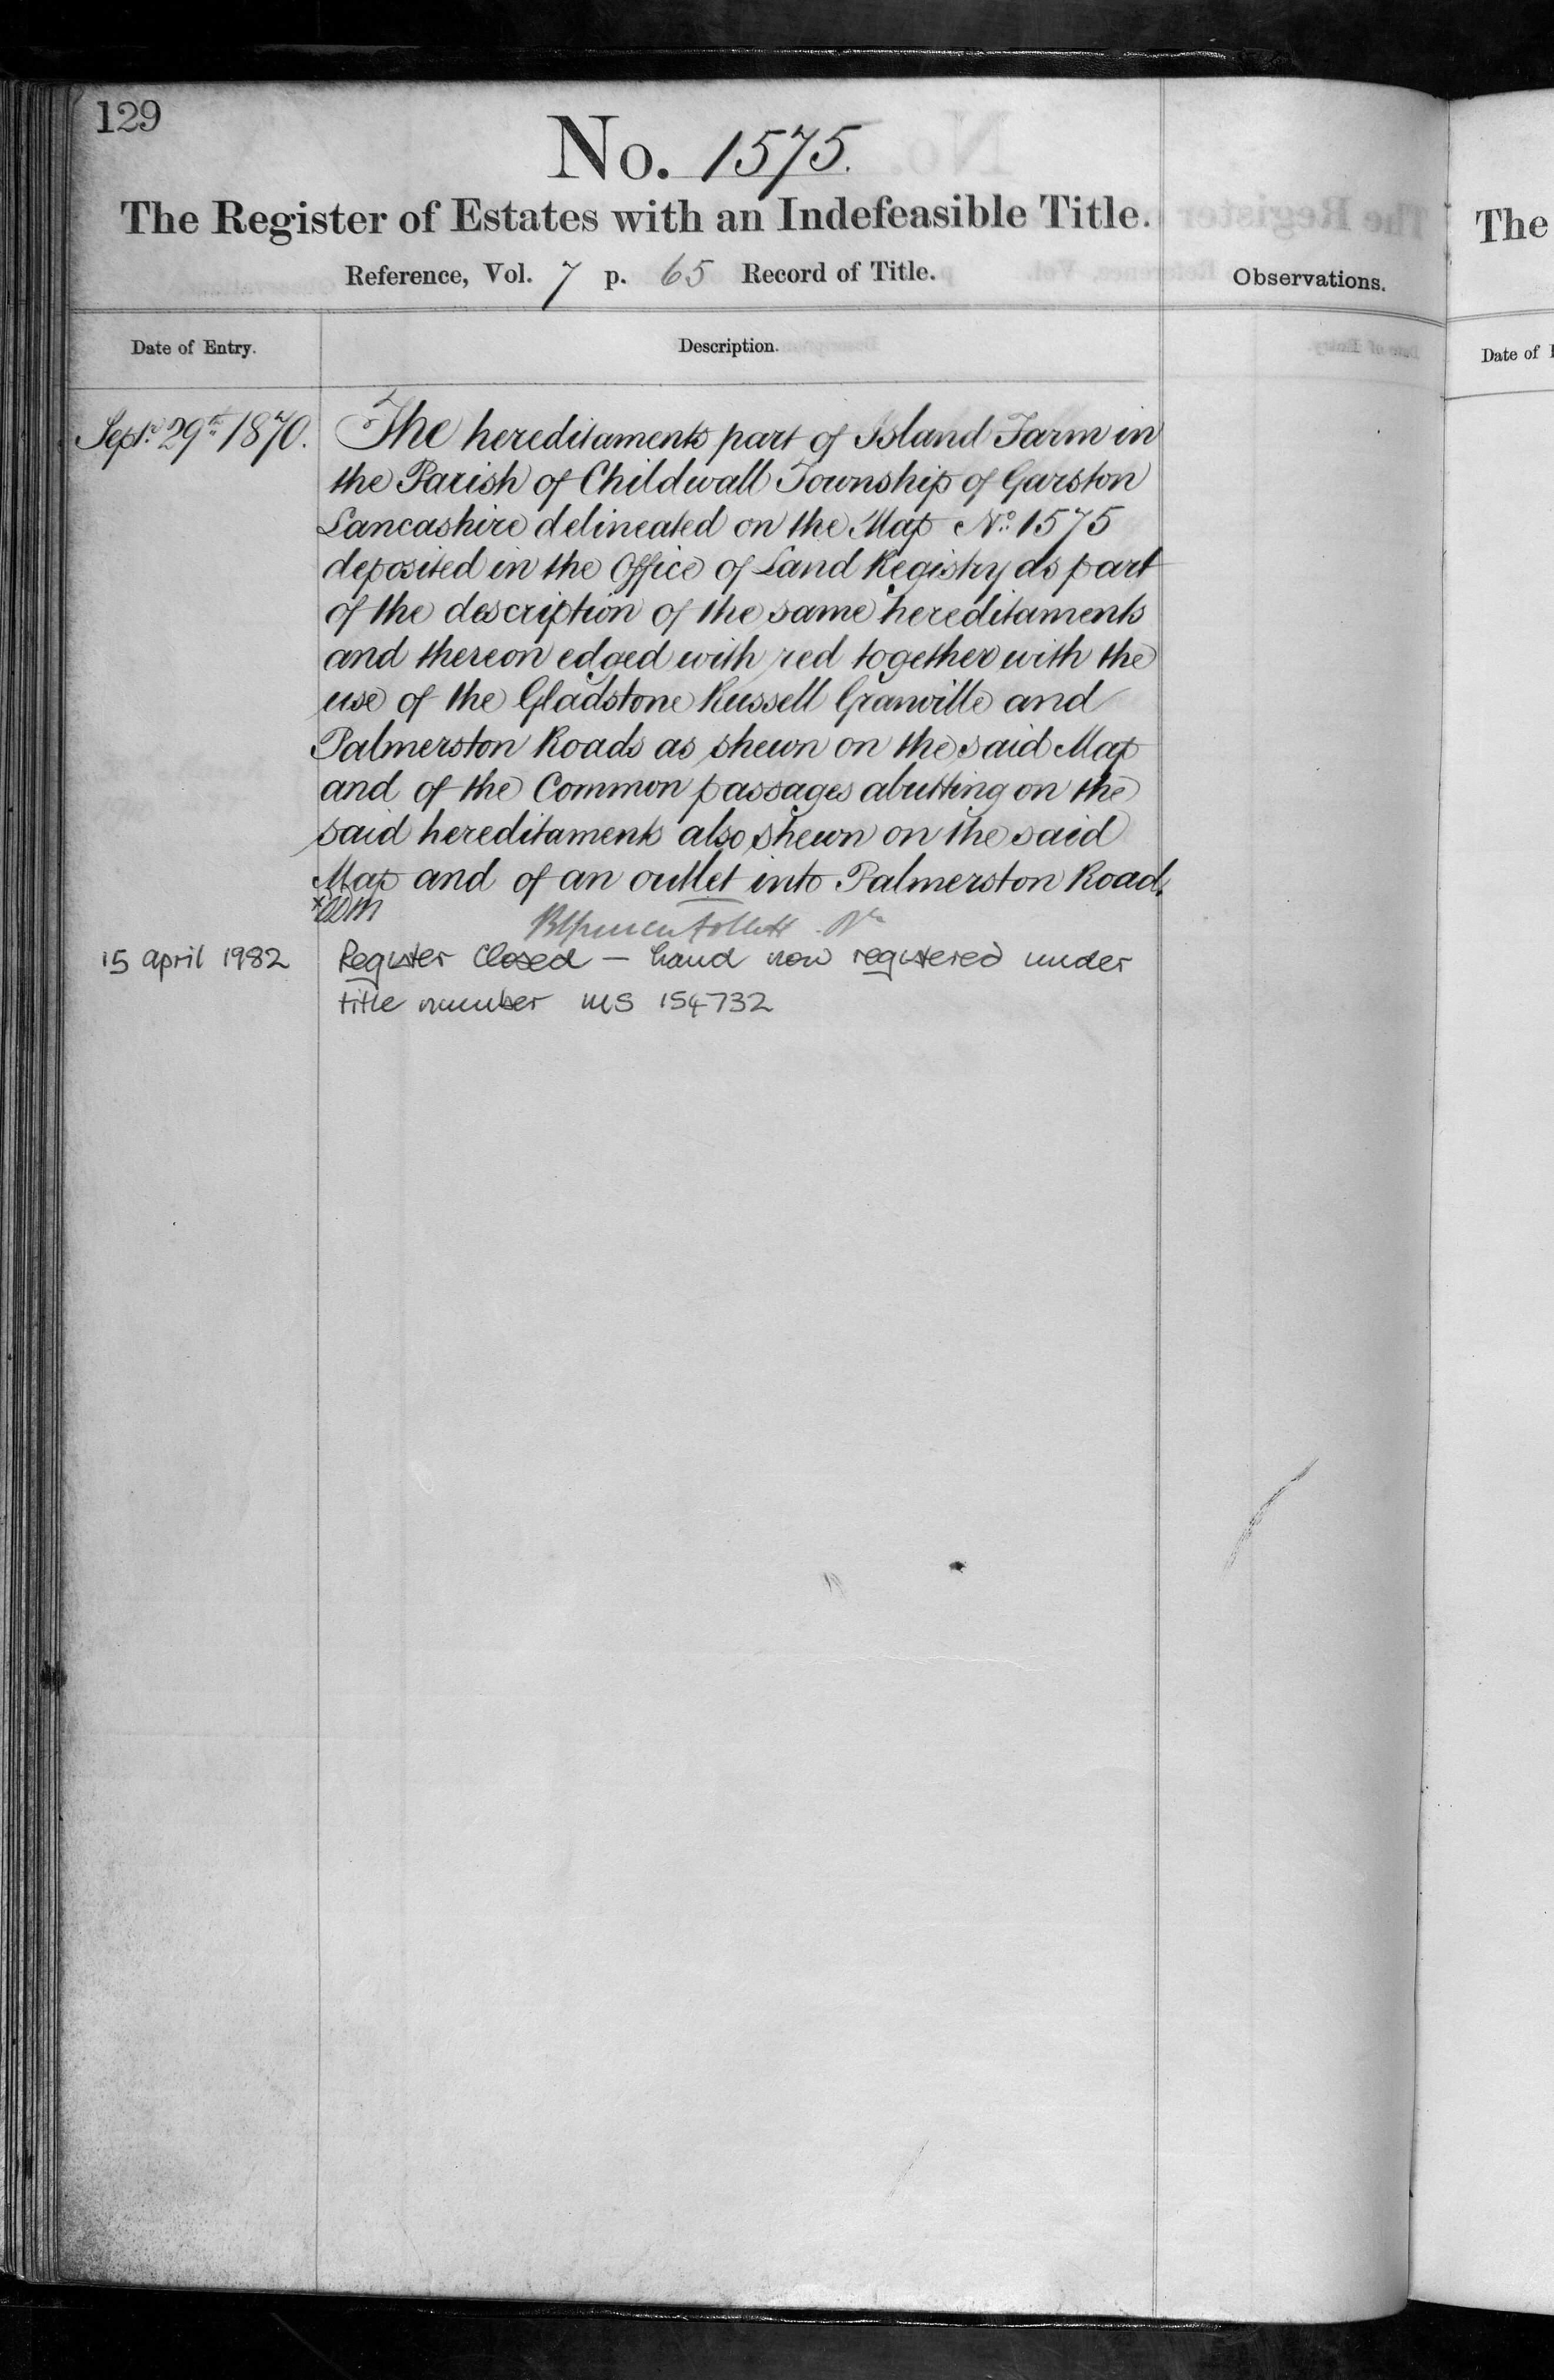 129
No. 1575.
The Register of Estates with an Indefeasible Title.
Reference, Vol. 7 p. 65 Record of Title.
Observations.
Date of Entry.
Description.
Septr. 29th 1870.
The hereditaments part of Island Farm in
the Parish of Childwall Township of Garston
Lancashire delineated on the Map No. 1575
deposited in the Office of Land Registry as part
of the description of the same hereditaments
and thereon edged with red together with the
use of the Gladstone Russell Granville and
Palmerston Roads as shewn on the said Map
and of the Common passages abutting on the
said hereditaments also shewn on the said
Map and of an outlet into Palmerston Road.
15 April 1982
Register Closed – Land now registered under
title number MS 154732
The
Date of